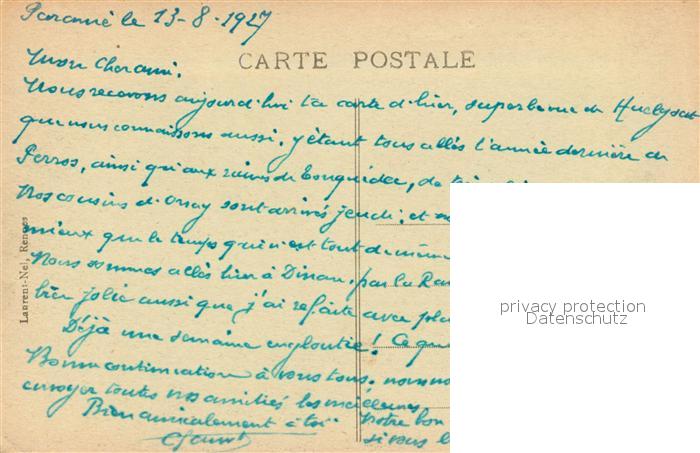 Paramé le 13-8-1927
CARTE POSTALE
Mon cher ami,
Nous recevons aujourd'hui ta carte d'hier, superbe vue de
que nous connaissons aussi, y étant tous allés l'année dernière de
Perros, ainsi qu'aux ruines de Tonquédec, de
Nos cousins d'Orsay sont arrivés jeudi; et
mieux que le temps qui n'est tout de même
Nous sommes allés hier à Dinan, par la
bien jolie aussi que j'ai refaite avec
Déjà une semaine engloutie! Ce
Bonne continuation à vous tous. nous
envoyer toutes nos amitiés les meilleures
Bien amicalement à toi
notre bon
si vous
Laurent-Nel, Rennes
privacy protection
Datenschutz